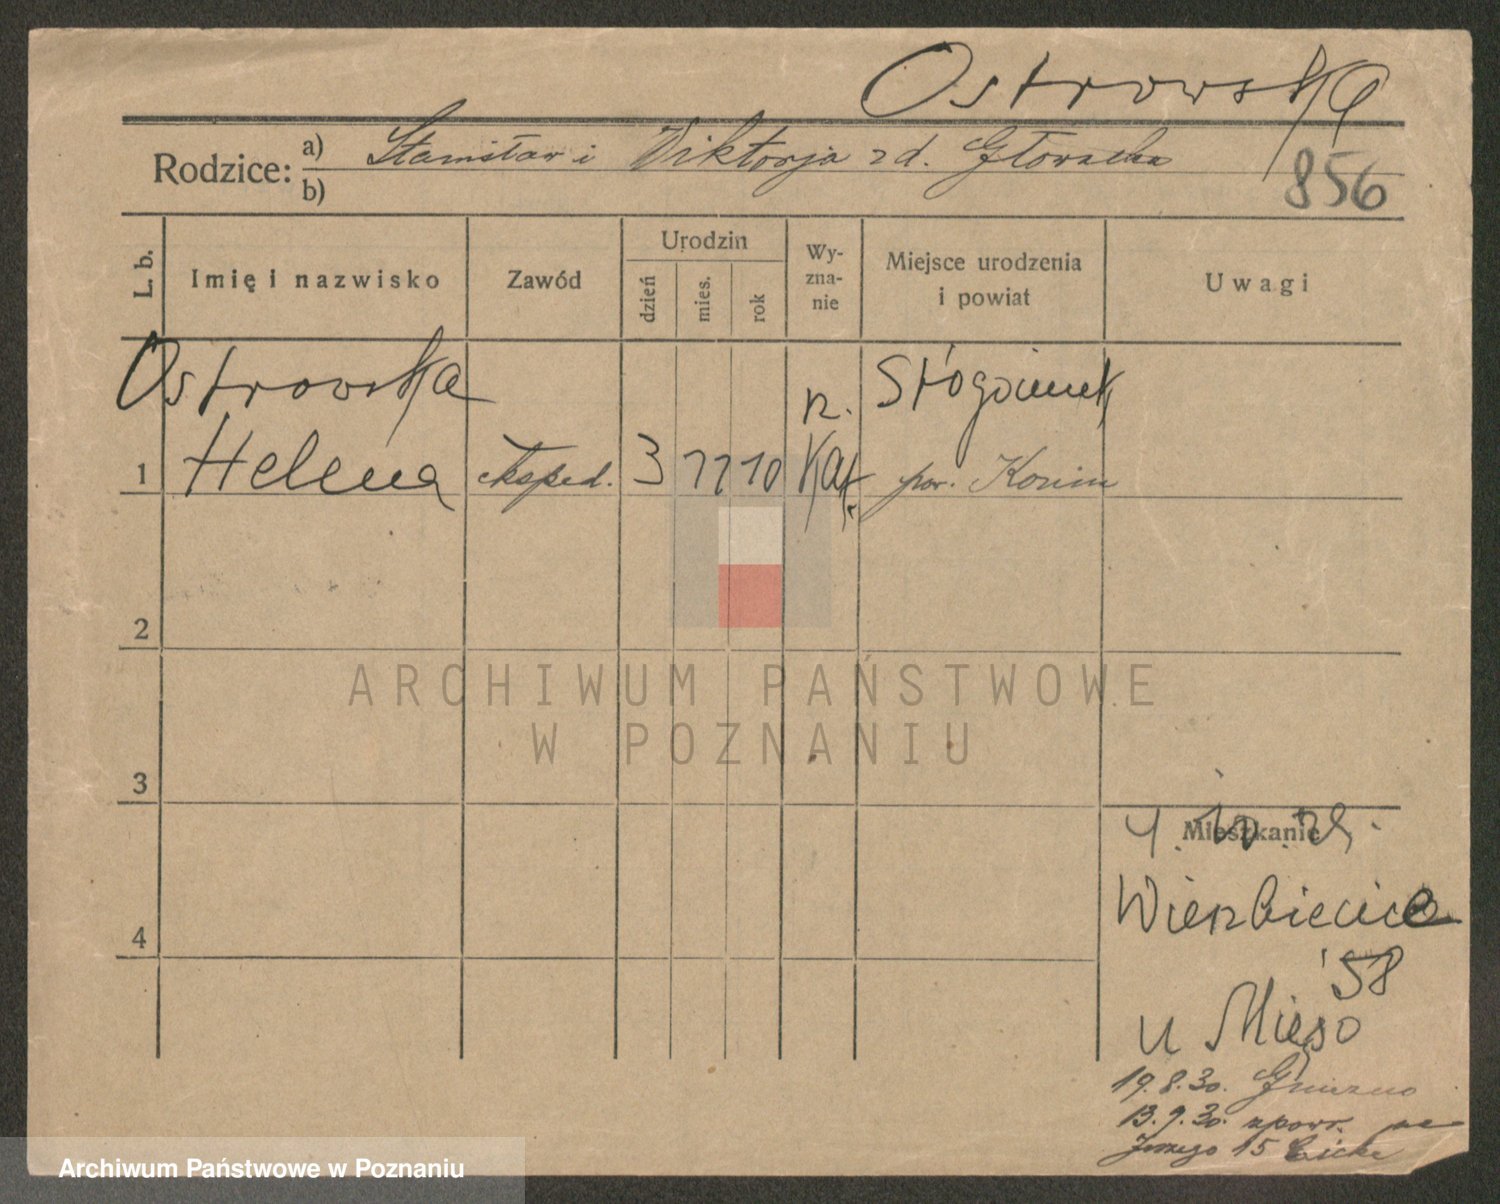 Ostrowska
Rodzice: a) Stanisław i Wiktorja z d. Głowacka
b)
856
L. b.
Imię i nazwisko
Zawód
Urodzin
dzień
mies.
rok
Wy-
zna-
nie
Miejsce urodzenia
i powiat
Uwagi
Ostrowska
1 Helena eksped. 3 11 10 rz. Kat. pow. Konin
2
3
4
Mieszkanie
Wierzbięcice
58
u Mięso
19.8.30. Gniezno
13.9.30. zpowr. na
15
ARCHIWUM PAŃSTWOWE
W POZNANIU
Archiwum Państwowe w Poznaniu